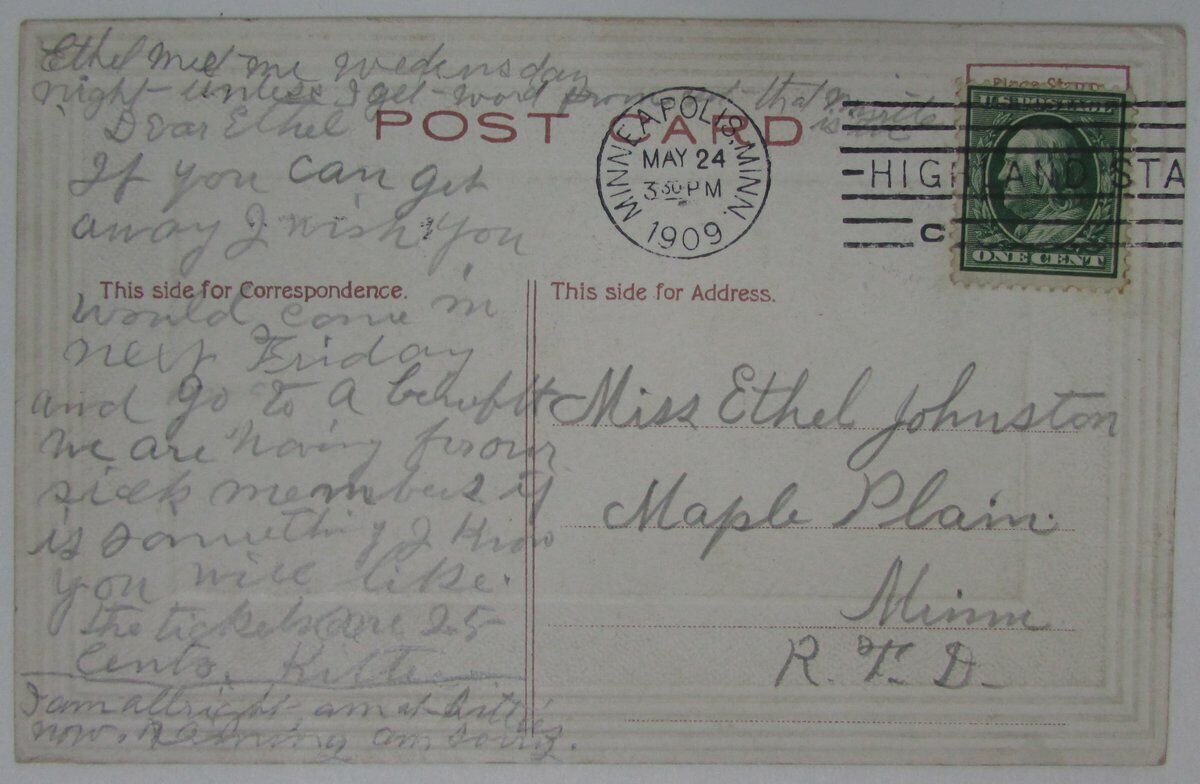 Ethel meet me wedensday
night unless I get word from that
Dear Ethel
POST CARD
Place Stamp
MINNEAPOLIS. MINN.
MAY 24
3 30 PM
1909
HIGHLAND STA
C
U.S. POSTAGE
ONE CENT
If you can get
away I wish you
This side for Correspondence.
would come in
next Friday
and go to a benefit
we are having for our
sick members it
is something I know
you will like.
the tickets are 25
cents. Kitte
I am allright am at
now. am
This side for Address.
Miss Ethel Johnston
Maple Plain.
Minn
R. F. D.